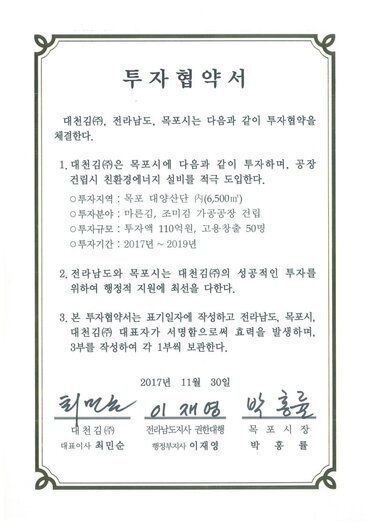 투자협약서
대천김㈜, 전라남도, 목포시는 다음과 같이 투자협약을
체결한다.
1. 대천김㈜은 목포시에 다음과 같이 투자하며, 공장
건립시 친환경에너지 설비를 적극 도입한다.
○투자지역 : 목포 대양산단 內(6,500㎡)
○투자분야 : 마른김, 조미김 가공공장 건립
○투자규모 : 투자액 110억원, 고용창출 50명
○투자기간 : 2017년 ~ 2019년
2. 전라남도와 목포시는 대천김㈜의 성공적인 투자를
위하여 행정적 지원에 최선을 다한다.
3. 본 투자협약서는 표기일자에 작성하고 전라남도, 목포시,
대천김㈜ 대표자가 서명함으로써 효력을 발생하며,
3부를 작성하여 각 1부씩 보관한다.
2017년 11월 30일
최민순 이재영 박홍률
대천김㈜ 전라남도지사 권한대행 목포시장
대표이사 최민순 행정부지사 이재영 박홍률